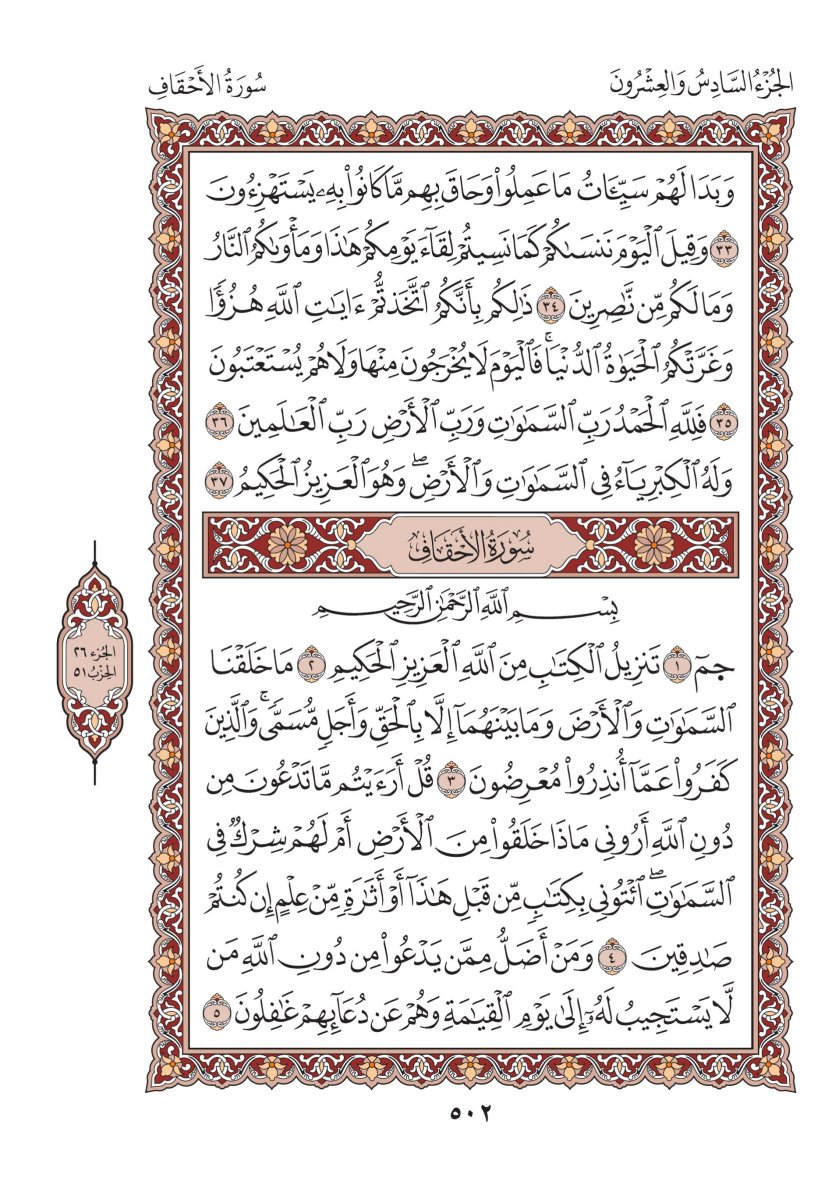 الجُزْءُ السَّادِسُ وَالعِشْرُونَ
سُورَةُ الأَحْقَافِ
وَبَدَا لَهُمْ سَيِّـَٔاتُ مَا عَمِلُوا۟ وَحَاقَ بِهِم مَّا كَانُوا۟ بِهِۦ يَسْتَهْزِءُونَ
٣٣ وَقِيلَ ٱلْيَوْمَ نَنسَىٰكُمْ كَمَا نَسِيتُمْ لِقَآءَ يَوْمِكُمْ هَـٰذَا وَمَأْوَىٰكُمُ ٱلنَّارُ
وَمَا لَكُم مِّن نَّـٰصِرِينَ ٣٤ ذَٰلِكُم بِأَنَّكُمُ ٱتَّخَذْتُمْ ءَايَـٰتِ ٱللَّهِ هُزُوًا
وَغَرَّتْكُمُ ٱلْحَيَوٰةُ ٱلدُّنْيَا ۚ فَٱلْيَوْمَ لَا يُخْرَجُونَ مِنْهَا وَلَا هُمْ يُسْتَعْتَبُونَ
٣٥ فَلِلَّهِ ٱلْحَمْدُ رَبِّ ٱلسَّمَـٰوَٰتِ وَرَبِّ ٱلْأَرْضِ رَبِّ ٱلْعَـٰلَمِينَ ٣٦
وَلَهُ ٱلْكِبْرِيَآءُ فِى ٱلسَّمَـٰوَٰتِ وَٱلْأَرْضِ ۖ وَهُوَ ٱلْعَزِيزُ ٱلْحَكِيمُ ٣٧
سُورَةُ الأَحْقَافِ
بِسْمِ ٱللَّهِ ٱلرَّحْمَـٰنِ ٱلرَّحِيمِ
حمٓ ١ تَنزِيلُ ٱلْكِتَـٰبِ مِنَ ٱللَّهِ ٱلْعَزِيزِ ٱلْحَكِيمِ ٢ مَا خَلَقْنَا
ٱلسَّمَـٰوَٰتِ وَٱلْأَرْضَ وَمَا بَيْنَهُمَآ إِلَّا بِٱلْحَقِّ وَأَجَلٍ مُّسَمًّى ۚ وَٱلَّذِينَ
كَفَرُوا۟ عَمَّآ أُنذِرُوا۟ مُعْرِضُونَ ٣ قُلْ أَرَءَيْتُم مَّا تَدْعُونَ مِن
دُونِ ٱللَّهِ أَرُونِى مَاذَا خَلَقُوا۟ مِنَ ٱلْأَرْضِ أَمْ لَهُمْ شِرْكٌ فِى
ٱلسَّمَـٰوَٰتِ ۖ ٱئْتُونِى بِكِتَـٰبٍ مِّن قَبْلِ هَـٰذَآ أَوْ أَثَـٰرَةٍ مِّنْ عِلْمٍ إِن كُنتُمْ
صَـٰدِقِينَ ٤ وَمَنْ أَضَلُّ مِمَّن يَدْعُوا۟ مِن دُونِ ٱللَّهِ مَن
لَّا يَسْتَجِيبُ لَهُۥٓ إِلَىٰ يَوْمِ ٱلْقِيَـٰمَةِ وَهُمْ عَن دُعَآئِهِمْ غَـٰفِلُونَ ٥
الجُزء ٢٦
الحِزْب ٥١
٥٠٢